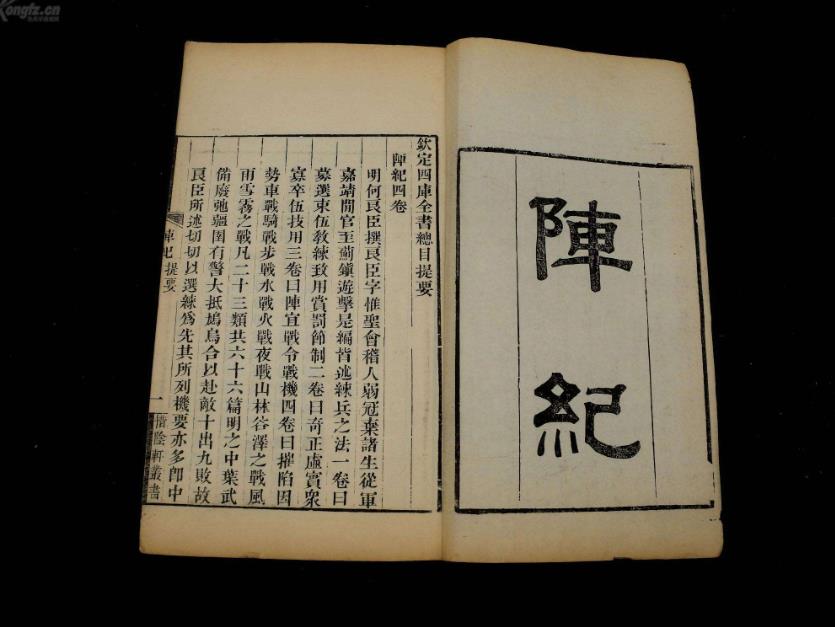 Kongfz.cn
陣紀
欽定四庫全書總目提要
陣紀四卷
明何良臣撰良臣字惟聖會稽人弱冠棄諸生從軍
嘉靖間官至薊鎮遊擊是編皆述練兵之法一卷曰
募選束伍教練致用賞罰節制二卷曰奇正虛實衆
寡卒伍技用三卷曰陣宜戰令戰機四卷曰摧陷因
勢車戰騎戰步戰水戰火戰夜戰山林谷澤之戰風
雨雪霧之戰凡二十三類共六十六篇明之中葉武
備廢弛疆圉有警大抵鳩烏合以赴敵十出九敗故
良臣所述切切以選練爲先其所列機要亦多卽中
陣紀 提要
一
惜陰軒叢書